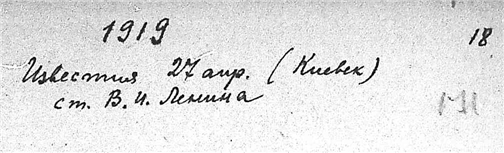 1919
18
Известия 27 апр. (Киевск)
ст. В. И. Ленина